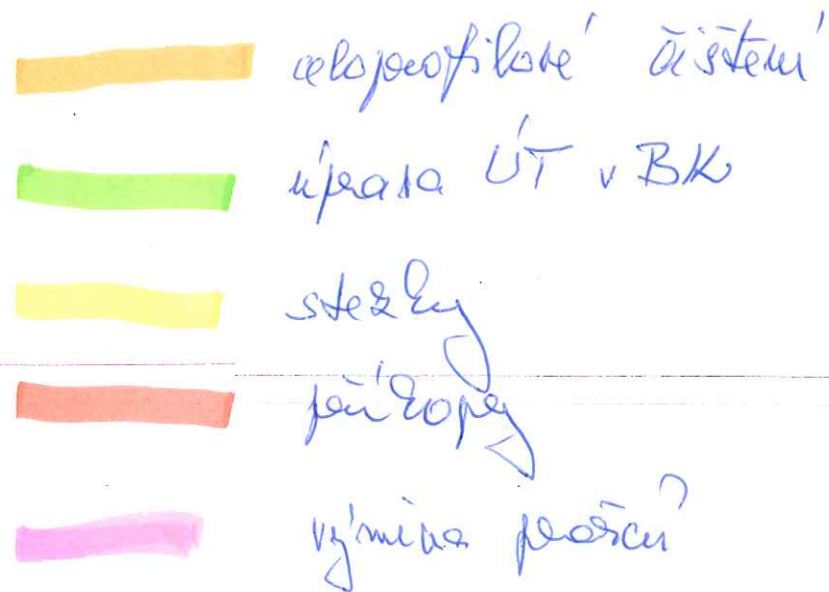 celoprofilové čištění
úprava ÚT v BK
stezky
příkopy
výměna pražců